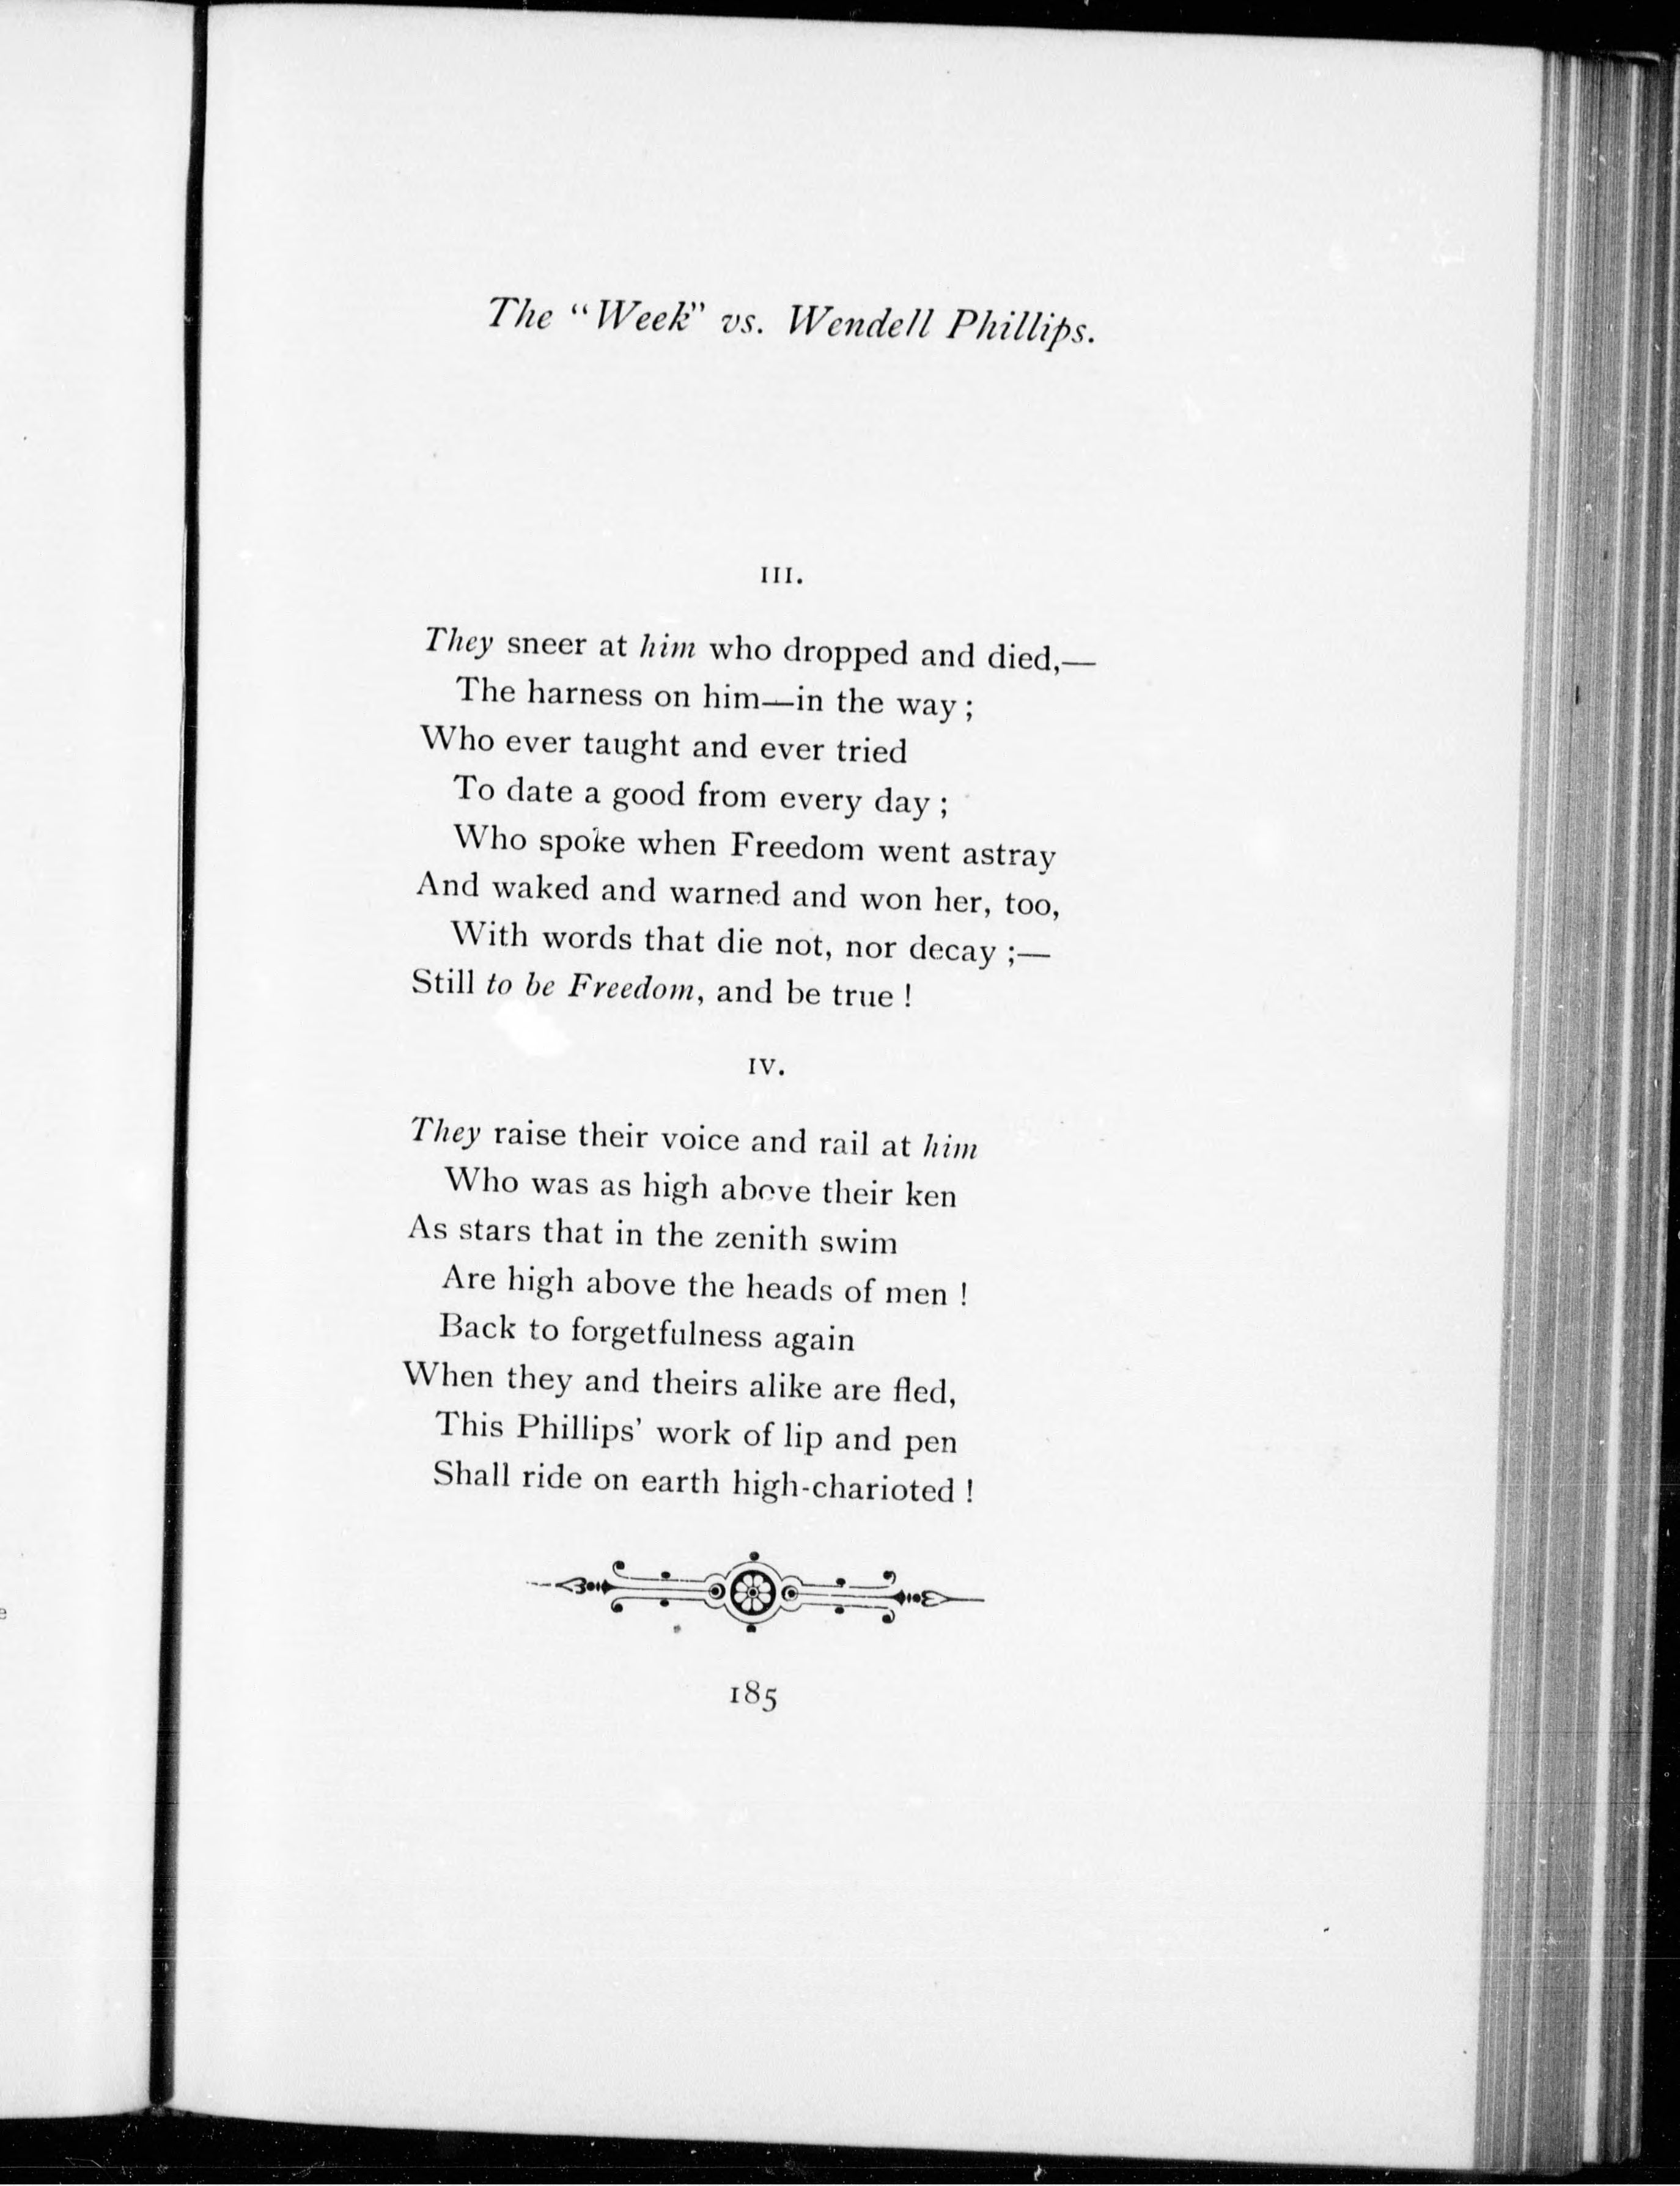 The "Week" vs. Wendell Phillips.
III.
They sneer at him who dropped and died,—
The harness on him—in the way ;
Who ever taught and ever tried
To date a good from every day ;
Who spoke when Freedom went astray
And waked and warned and won her, too,
With words that die not, nor decay ;—
Still to be Freedom, and be true !
IV.
They raise their voice and rail at him
Who was as high above their ken
As stars that in the zenith swim
Are high above the heads of men !
Back to forgetfulness again
When they and theirs alike are fled,
This Phillips' work of lip and pen
Shall ride on earth high-charioted !
185